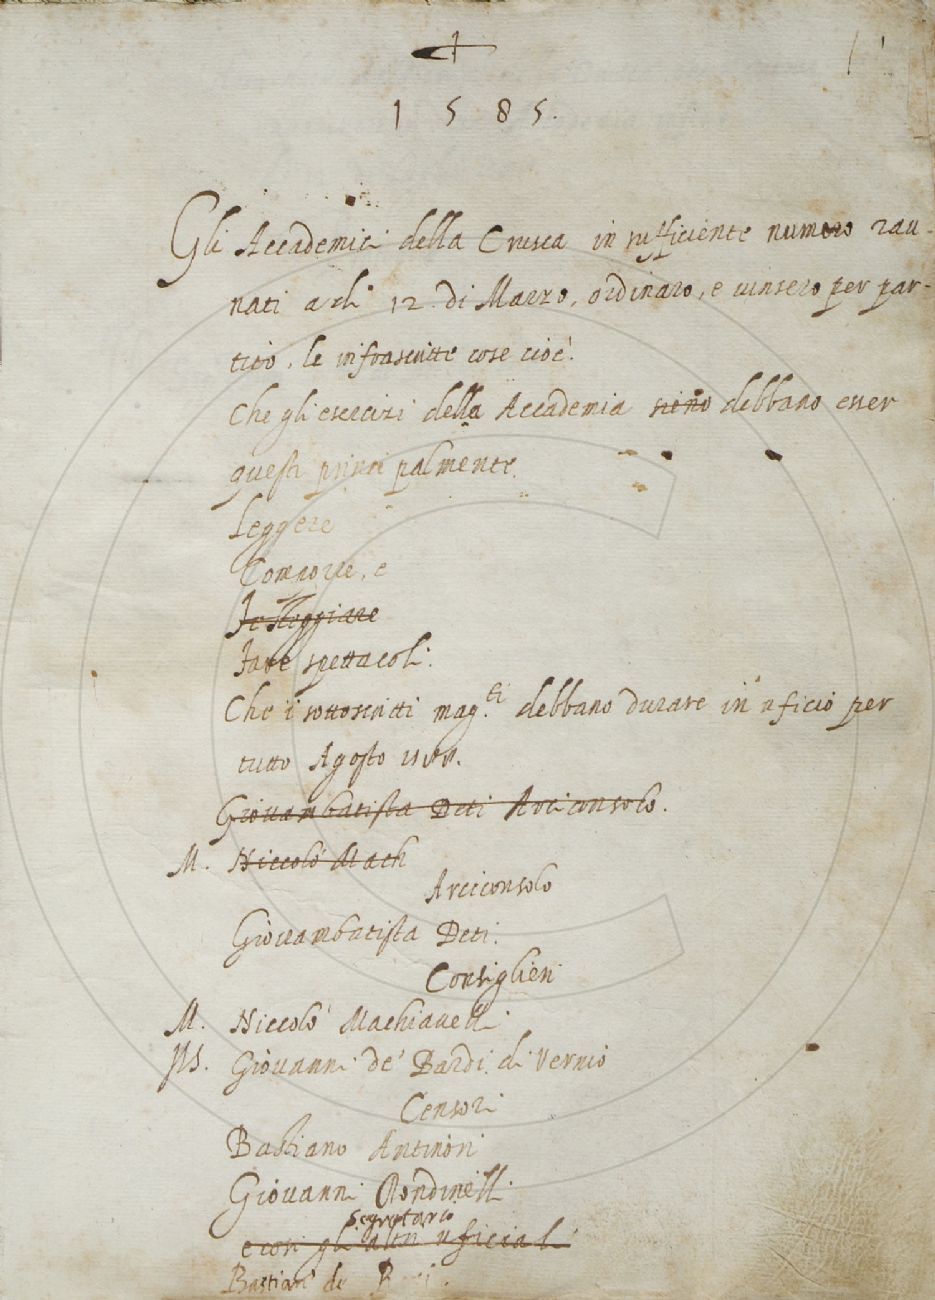 1585.
Gli Accademici della Crusca in sufficiente numero rau-
nati a dì 12 di Marzo, ordinaro, e vinsero per par-
tito, le infrascritte cose cioè.
Che gli esercizi della Accademia sieno debbano esser
questi principalmente
Leggere
Comporre, e
Festeggiare
Fare spettacoli.
Che i sottoscritti mag.ti debbano durare in uficio per
tutto Agosto
Giouambatista Deti Arciconsolo.
M. Niccolò Mach
Arciconsolo
Giouambatista Deti.
Consiglieri
M. Niccolò Machiauelli.
Giouanni de' Bardi di Vernio
Censori
Bastiano Antinori
Giouanni Rondinelli.
Segretario
e con gli altri uficiali
Bastian de